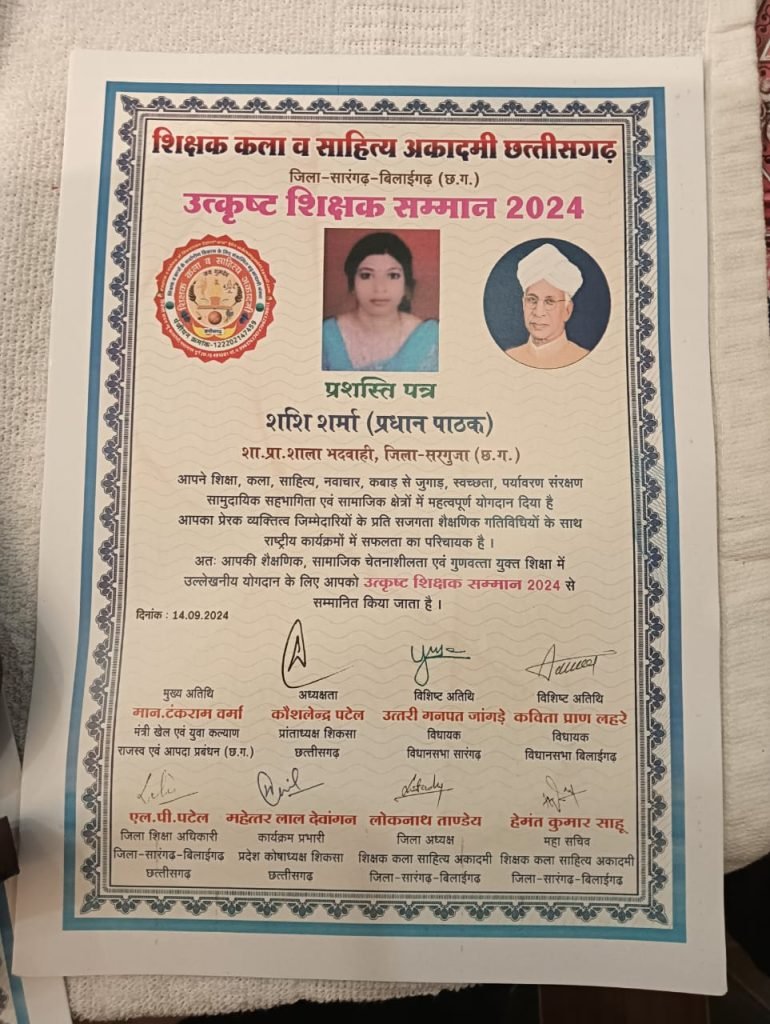 शिक्षक कला व साहित्य अकादमी छत्तीसगढ़
जिला-सारंगढ़-बिलाईगढ़ (छ.ग.)
उत्कृष्ट शिक्षक सम्मान 2024
शिक्षक कला व साहित्य अकादमी
जय गुरुदेव
छत्तीसगढ़
पंजीयन क्रमांक-122202147459
प्रशस्ति पत्र
शशि शर्मा (प्रधान पाठक)
शा.प्रा.शाला भदवाही, जिला-सरगुजा (छ.ग.)
आपने शिक्षा, कला, साहित्य, नवाचार, कबाड़ से जुगाड़, स्वच्छता, पर्यावरण संरक्षण
सामुदायिक सहभागिता एवं सामाजिक क्षेत्रों में महत्वपूर्ण योगदान दिया है
आपका प्रेरक व्यक्तित्व जिम्मेदारियों के प्रति सजगता शैक्षणिक गतिविधियों के साथ
राष्ट्रीय कार्यक्रमों में सफलता का परिचायक है ।
अतः आपकी शैक्षणिक, सामाजिक चेतनाशीलता एवं गुणवत्ता युक्त शिक्षा में
उल्लेखनीय योगदान के लिए आपको उत्कृष्ट शिक्षक सम्मान 2024 से
सम्मानित किया जाता है ।
दिनांक : 14.09.2024
मुख्य अतिथि अध्यक्षता विशिष्ट अतिथि विशिष्ट अतिथि
मान.टंकराम वर्मा कौशलेन्द्र पटेल उत्तरी गनपत जांगड़े कविता प्राण लहरे
मंत्री खेल एवं युवा कल्याण प्रांताध्यक्ष शिकसा विधायक विधायक
राजस्व एवं आपदा प्रबंधन (छ.ग.) छत्तीसगढ़ विधानसभा सारंगढ़ विधानसभा बिलाईगढ़
एल.पी.पटेल महेत्तर लाल देवांगन लोकनाथ ताण्डेय हेमंत कुमार साहू
जिला शिक्षा अधिकारी कार्यक्रम प्रभारी जिला अध्यक्ष महा सचिव
जिला-सारंगढ़-बिलाईगढ़ प्रदेश कोषाध्यक्ष शिकसा शिक्षक कला साहित्य अकादमी शिक्षक कला साहित्य अकादमी
छत्तीसगढ़ छत्तीसगढ़ जिला-सारंगढ़-बिलाईगढ़ जिला-सारंगढ़-बिलाईगढ़